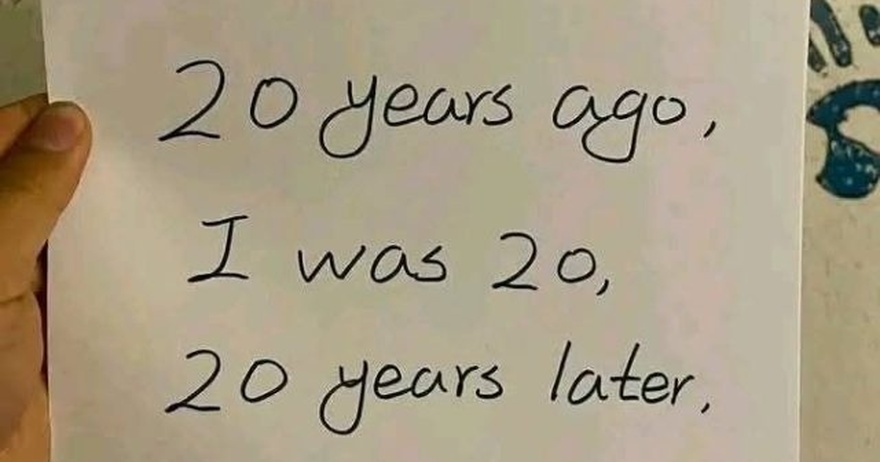 20 years ago,
I was 20,
20 years later,